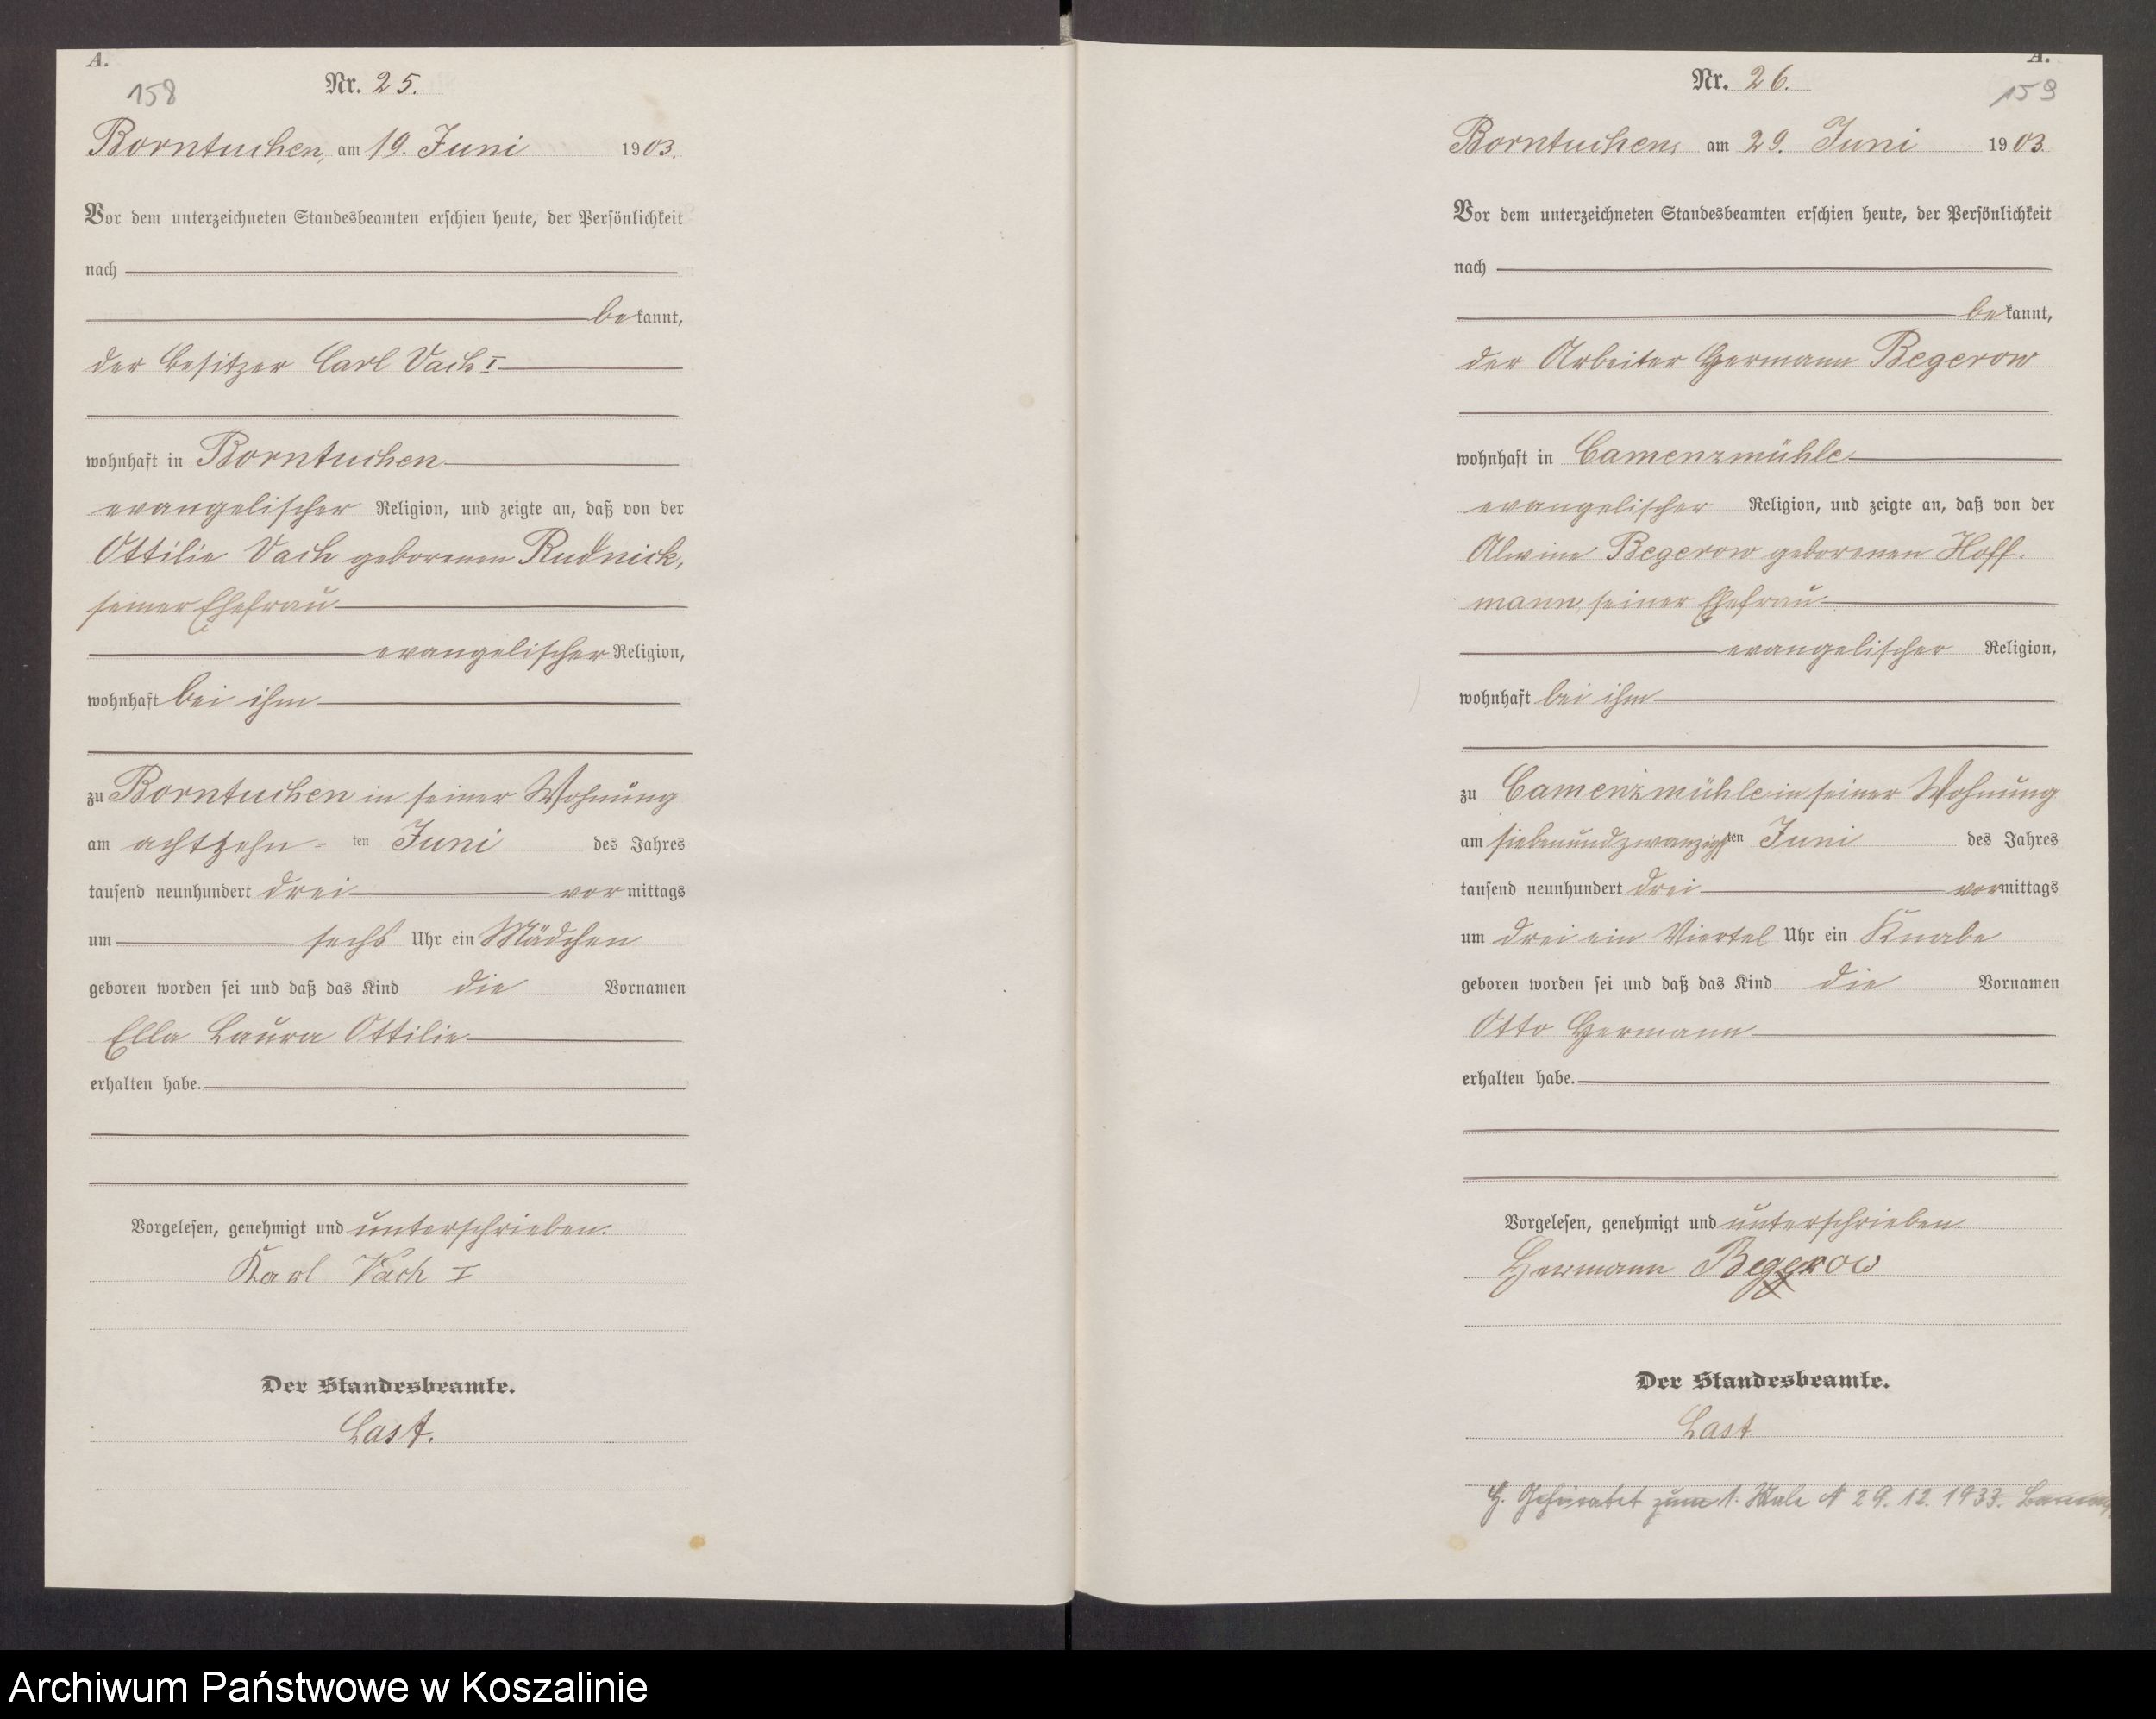 A.
158
Nr. 25.
Borntuchen, am 19. Juni 1903.
Vor dem unterzeichneten Standesbeamten erschien heute, der Persönlichkeit
nach
bekannt,
der Besitzer Carl Vach I
wohnhaft in Borntuchen
evangelischer Religion, und zeigte an, daß von der
Ottilie Vach geborenen Rudnick,
seiner Ehefrau
evangelischer Religion,
wohnhaft bei ihm
zu Borntuchen in seiner Wohnung
am achtzehn-ten Juni des Jahres
tausend neunhundert drei vormittags
um sechs Uhr ein Mädchen
geboren worden sei und daß das Kind die Vornamen
Ella Laura Ottilie
erhalten habe.
Vorgelesen, genehmigt und unterschrieben.
Karl Vach I
Der Standesbeamte.
Last.
A.
159
Nr. 26.
Borntuchen, am 29. Juni 1903.
Vor dem unterzeichneten Standesbeamten erschien heute, der Persönlichkeit
nach
bekannt,
der Arbeiter Hermann Begerow
wohnhaft in Camenzmühle
evangelischer Religion, und zeigte an, daß von der
Alwine Begerow geborenen Hoff-
mann, seiner Ehefrau
evangelischer Religion,
wohnhaft bei ihm
zu Camenzmühle in seiner Wohnung
am siebenundzwanzigsten Juni des Jahres
tausend neunhundert drei vormittags
um drei ein Viertel Uhr ein Knabe
geboren worden sei und daß das Kind die Vornamen
Otto Hermann
erhalten habe.
Vorgelesen, genehmigt und unterschrieben.
Hermann Begerow
Der Standesbeamte.
Last
Geheiratet zum 1. Male 29. 12. 1933.
Archiwum Państwowe w Koszalinie